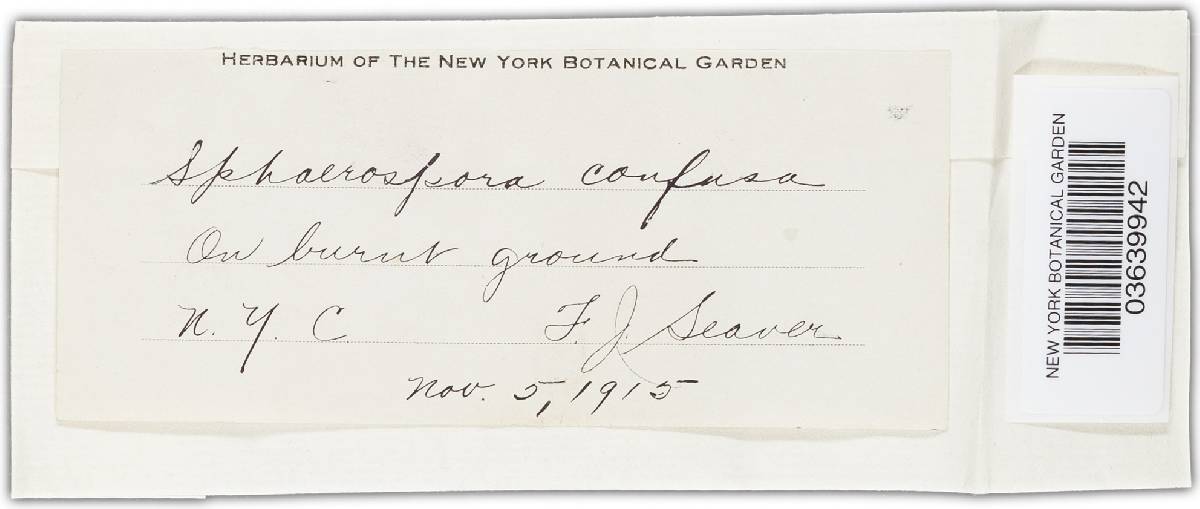 HERBARIUM OF THE NEW YORK BOTANICAL GARDEN
Sphaerospora confusa
On burnt ground
N. Y. C F. J. Seaver
Nov. 5, 1915
NEW YORK BOTANICAL GARDEN
03639942